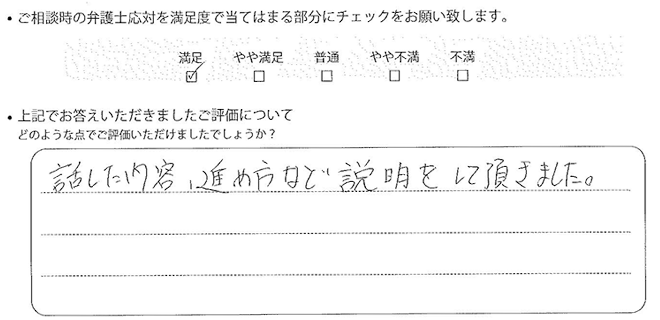 • ご相談時の弁護士応対を満足度で当てはまる部分にチェックをお願い致します。
満足 やや満足 普通 やや不満 不満
☑ □ □ □ □
• 上記でお答えいただきましたご評価について
どのような点でご評価いただけましたでしょうか？
話した内容、進め方など説明をして頂きました。